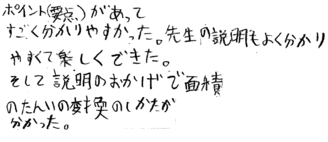 ポイント(要点)があって
すごく分かりやすかった。先生の説明もよく分かり
やすくて楽しくできた。
そして説明のおかげで面積
のたんいの変換のしかたが
分かった。